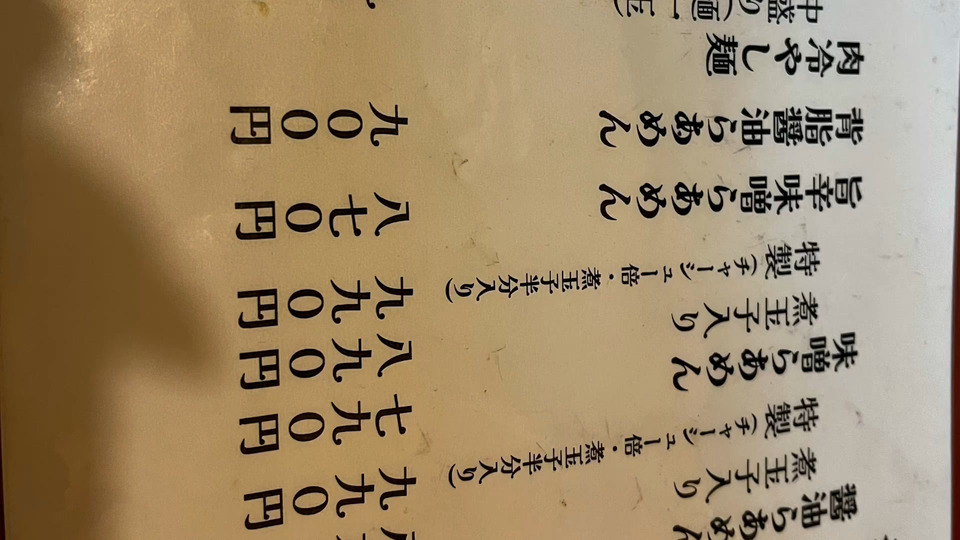 醤油らあめん
煮玉子入り
特製(チャーシュー倍・煮玉子半分入り) 九九〇円
味噌らあめん 七九〇円
煮玉子入り 八九〇円
特製(チャーシュー倍・煮玉子半分入り) 九九〇円
旨辛味噌らあめん 八七〇円
背脂醤油らあめん 九〇〇円
肉冷やし麺